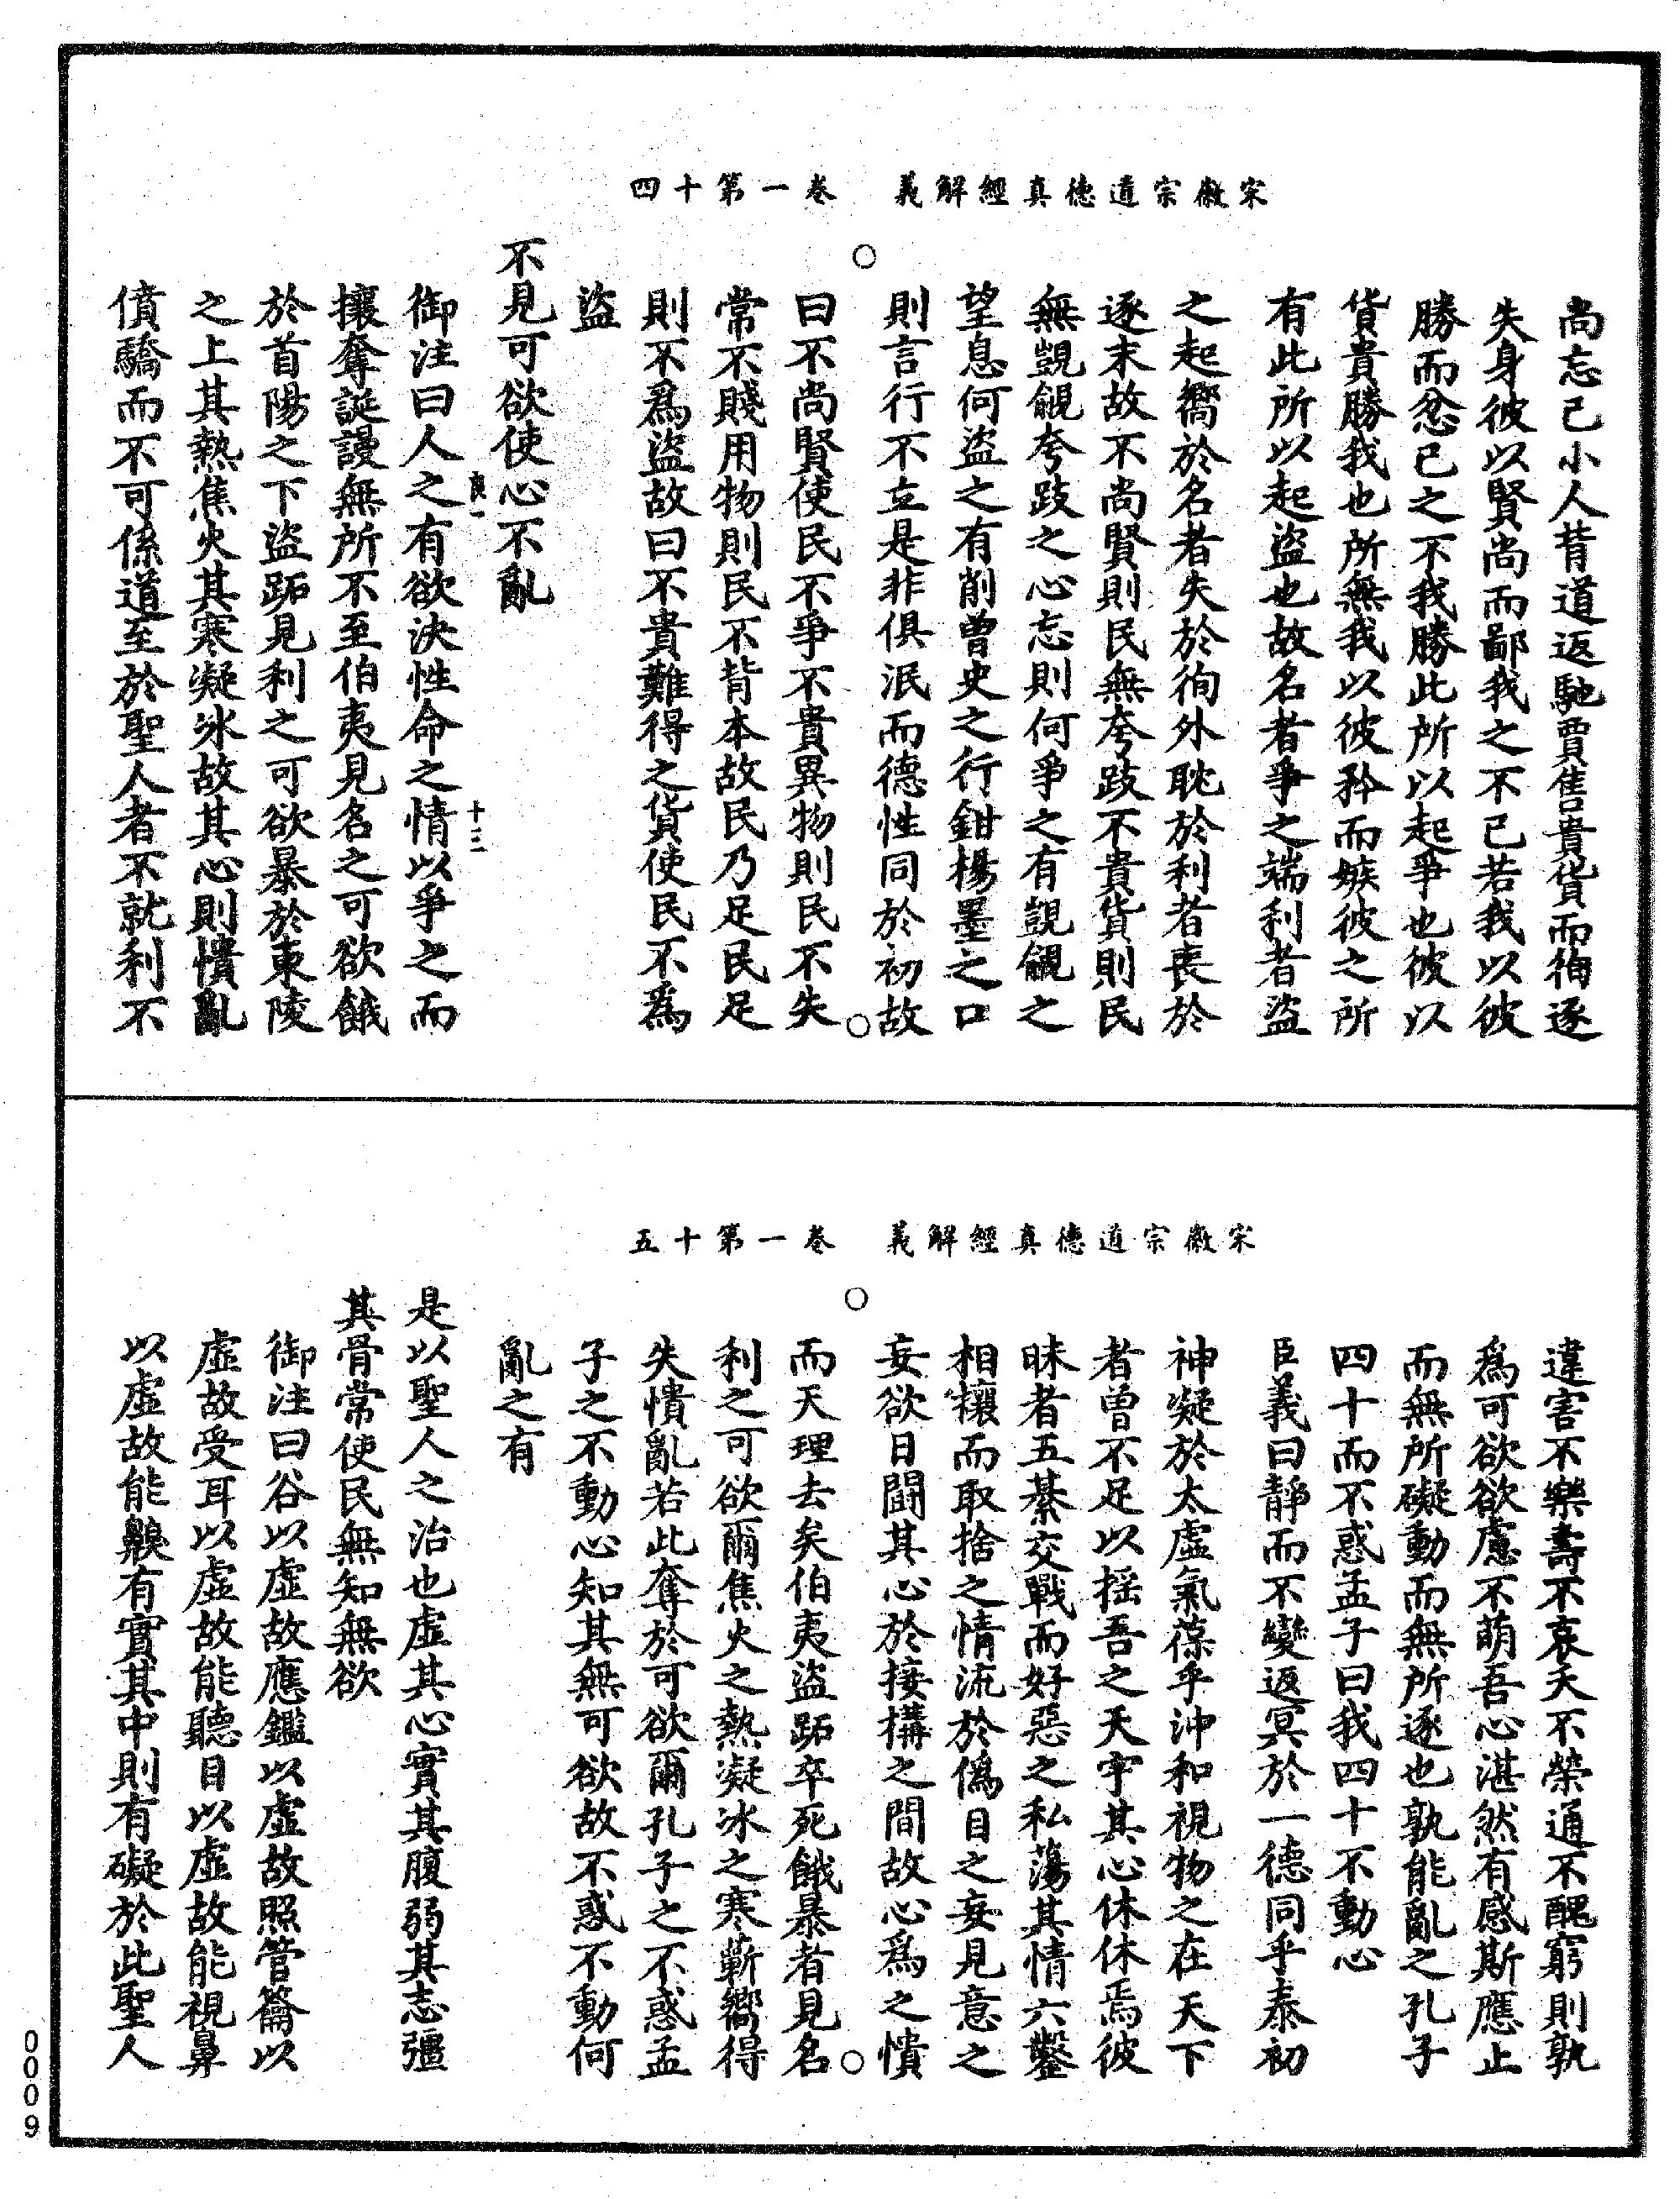 宋徽宗道德真經解義　卷一第十四
尚忘己小人背道返馳賈售貴貨而徇逐
失身彼以賢尚而鄙我之不已若我以彼
勝而忿已之不我勝此所以起爭也彼以
貨貴勝我也所無我以彼矜而嫉彼之所
有此所以起盜也故名者爭之端利者盜
之起嚮於名者失於徇外耽於利者喪於
逐末故不尚賢則民無夸跂不貴貨則民
無覬覦夸跂之心忘則何爭之有覬覦之
望息何盜之有削曾史之行鉗楊墨之口
則言行不立是非俱泯而德性同於初故
曰不尚賢使民不爭不貴異物則民不失
常不賤用物則民不背本故民乃足民足
則不爲盜故曰不貴難得之貨使民不爲
盜
不見可欲使心不亂
良一　十三
御注曰人之有欲決性命之情以爭之而
攘奪誕謾無所不至伯夷見名之可欲餓
於首陽之下盜跖見利之可欲暴於東陵
之上其熱焦火其寒凝冰故其心則憒亂
僨驕而不可係道至於聖人者不就利不
宋徽宗道德真經解義　卷一第十五
違害不樂壽不哀夭不榮通不醜窮則孰
爲可欲欲慮不萌吾心湛然有感斯應止
而無所礙動而無所逐也孰能亂之孔子
四十而不惑孟子曰我四十不動心
臣義曰靜而不變返冥於一德同乎泰初
神凝於太虛氣葆乎沖和視物之在天下
者曾不足以搖吾之天宇其心休休焉彼
昧者五綦交戰而好惡之私蕩其情六鑿
相攘而取捨之情流於僞目之妄見意之
妄欲日鬪其心於接構之間故心爲之憒
而天理去矣伯夷盜跖卒死餓暴者見名
利之可欲爾焦火之熱凝冰之寒蘄嚮得
失憒亂若此奪於可欲爾孔子之不惑孟
子之不動心知其無可欲故不惑不動何
亂之有
是以聖人之治也虛其心實其腹弱其志彊
其骨常使民無知無欲
御注曰谷以虛故應鑑以虛故照管籥以
虛故受耳以虛故能聽目以虛故能視鼻
以虛故能齅有實其中則有礙於此聖人
0009